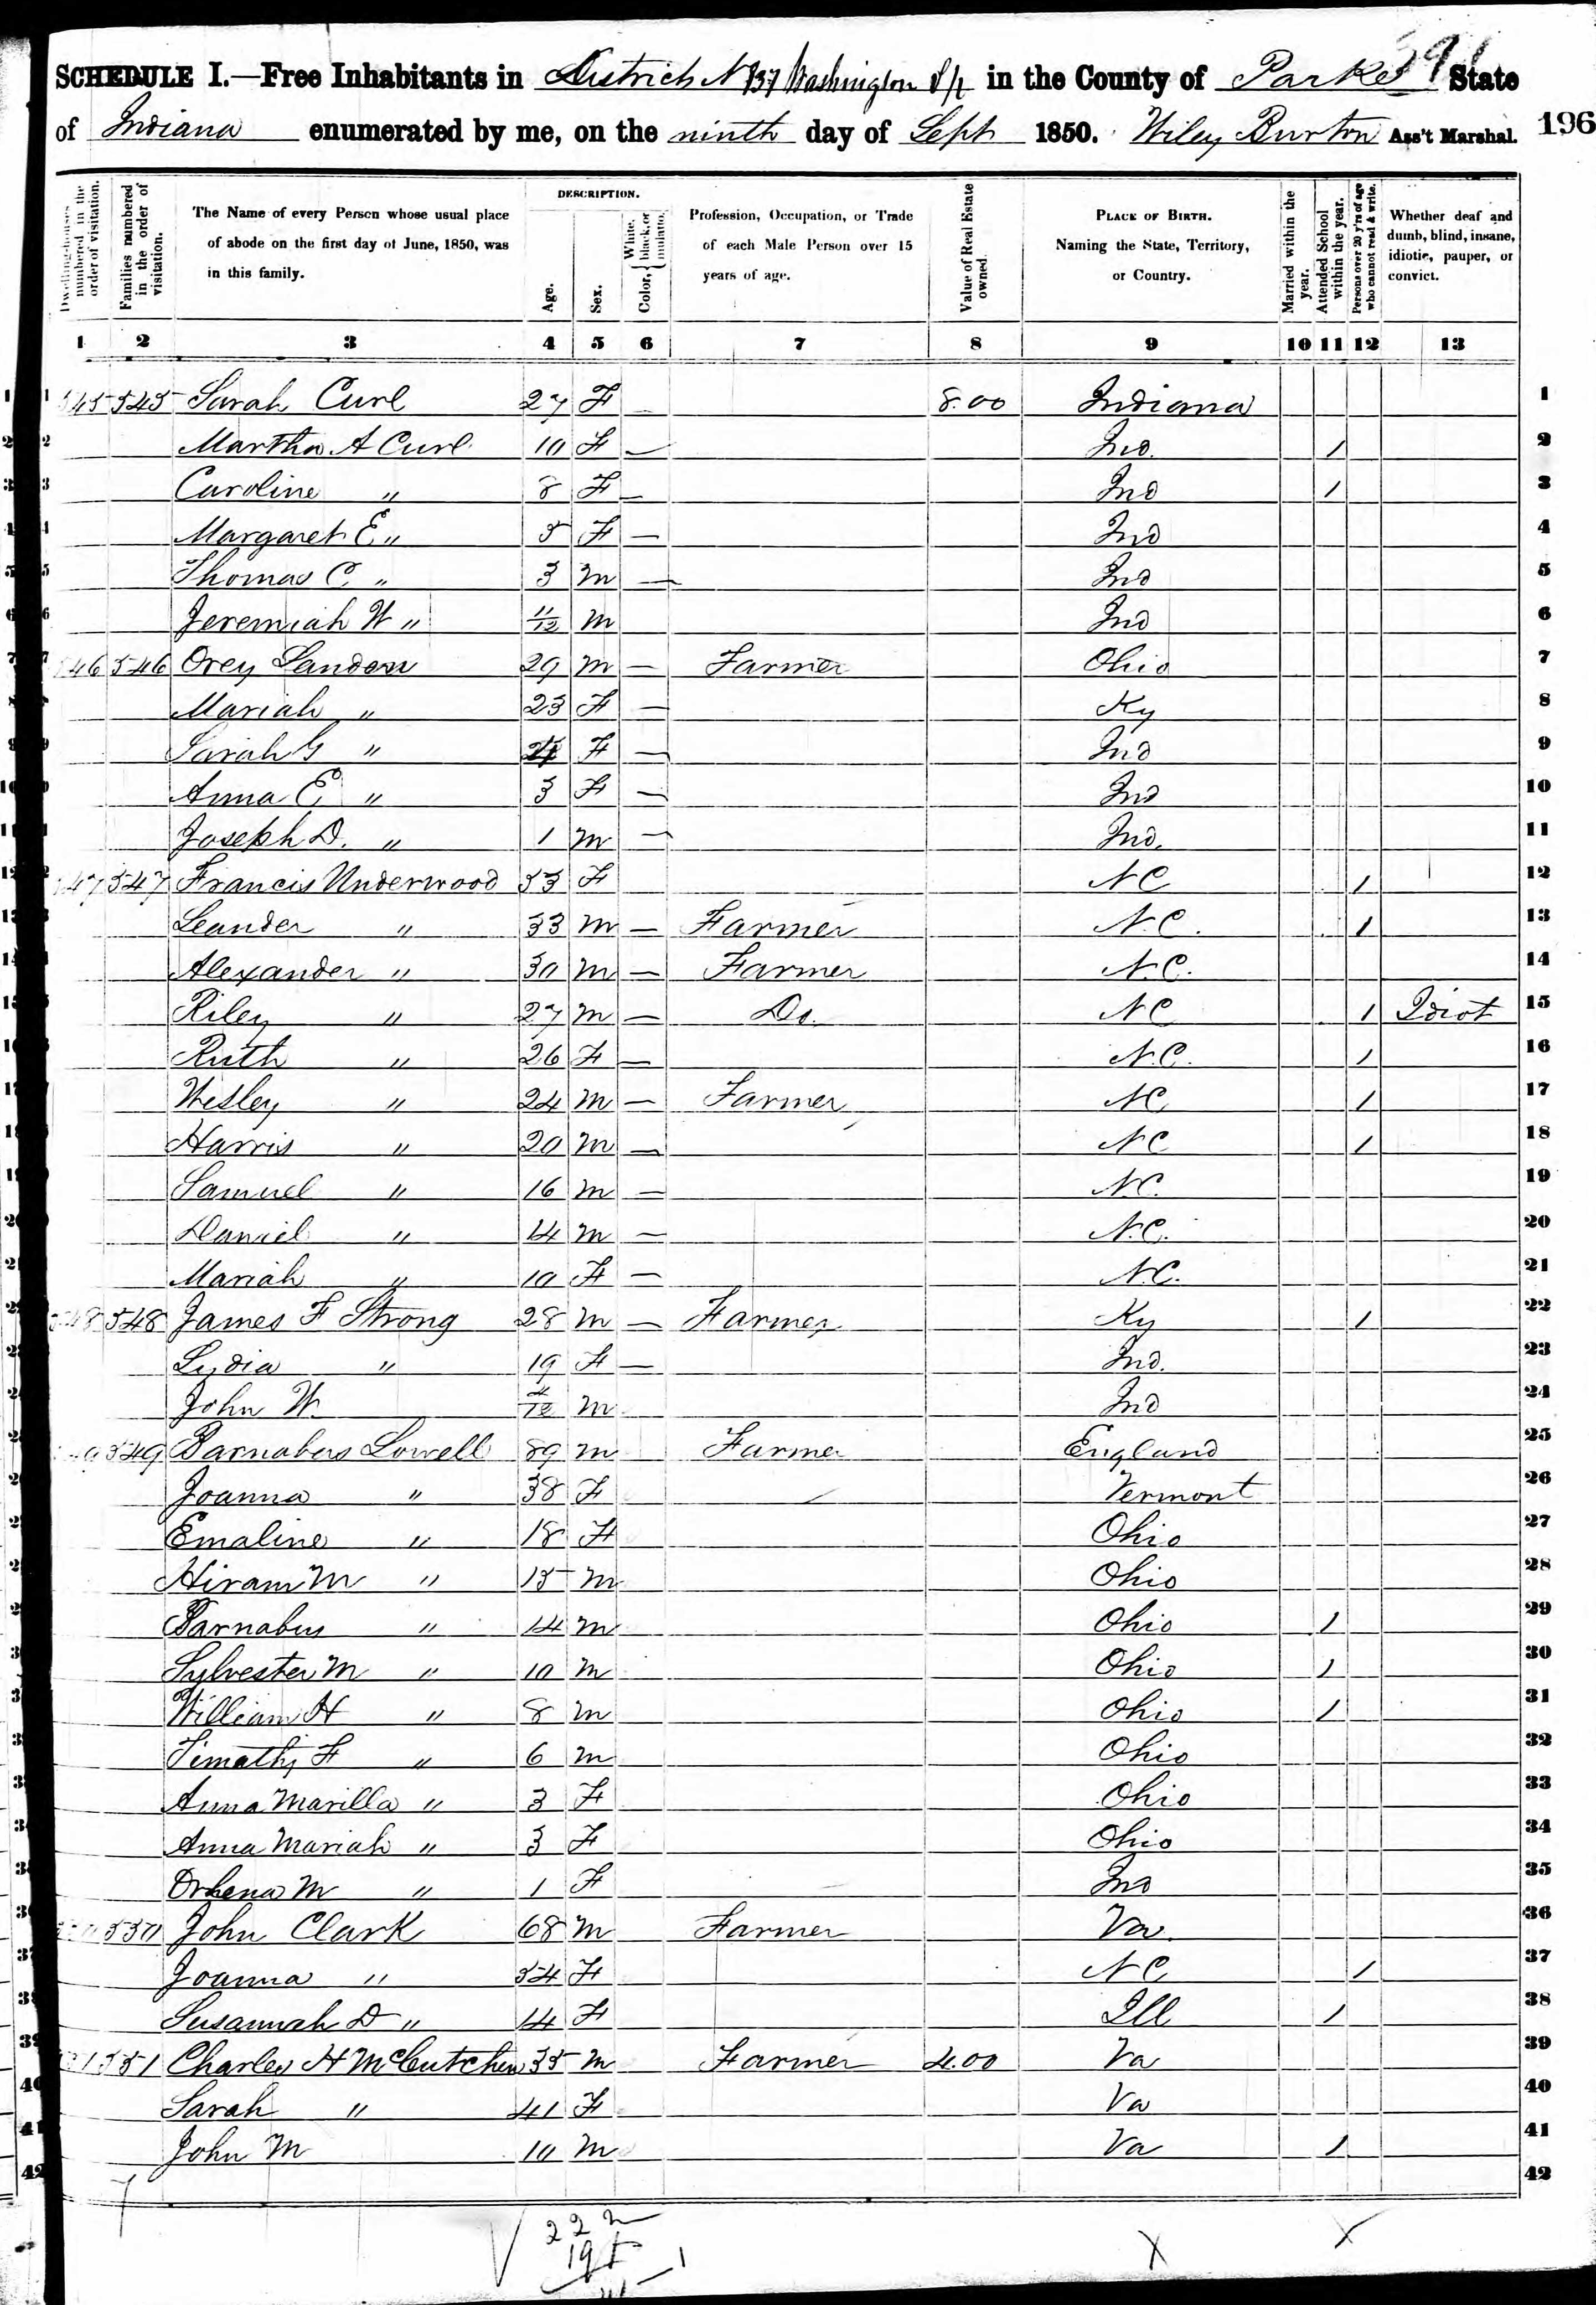 391
SCHEDULE I.—Free Inhabitants in District N 137 Washington T/p in the County of Parke State
of Indiana enumerated by me, on the ninth day of Sept 1850. Wiley Burton Ass't Marshal. 196
Dwelling-houses numbered in the order of visitation.
Families numbered in the order of visitation.
The Name of every Person whose usual place of abode on the first day of June, 1850, was in this family.
DESCRIPTION.
Age.
Sex.
Color, { White, black, or mulatto.
Profession, Occupation, or Trade of each Male Person over 15 years of age.
Value of Real Estate owned.
PLACE OF BIRTH. Naming the State, Territory, or Country.
Married within the year.
Attended School within the year.
Persons over 20 y'rs of age who cannot read & write.
Whether deaf and dumb, blind, insane, idiotic, pauper, or convict.
1 2 3 4 5 6 7 8 9 10 11 12 13
1 545 545 Sarah Curl 27 F — 8.00 Indiana 1
2 Martha A Curl 10 F — Ind. / 2
3 Caroline " 8 F — Ind / 3
4 Margaret E " 5 F — Ind 4
5 Thomas C. " 3 m — Ind 5
6 Jeremiah W " 11/12 m Ind 6
7 546 546 Orey Landon 29 m — Farmer Ohio 7
8 Mariah " 23 F — Ky 8
9 Sarah G " 4 F — Ind 9
10 Anna E " 3 F — Ind 10
11 Joseph D. " 1 m — Ind. 11
12 547 547 Francis Underwood 53 F NC / 12
13 Leander " 33 m — Farmer N.C. / 13
14 Alexander " 30 m — Farmer N.C. 14
15 Riley " 27 m — Do. NC / Idiot 15
16 Ruth " 26 F — N.C. / 16
17 Wesley " 24 m — Farmer NC / 17
18 Harris " 20 m — NC / 18
19 Samuel " 16 m — N.C. 19
20 Daniel " 14 m — N.C. 20
21 Mariah " 10 F — N.C. 21
22 548 548 James F Strong 28 m — Farmer Ky / 22
23 Lydia " 19 F — Ind. 23
24 John W. 4/12 m Ind 24
25 549 549 Barnabus Lowell 89 m Farmer England 25
26 Joanna " 38 F Vermont 26
27 Emaline " 18 F Ohio 27
28 Hiram M " 15 m Ohio 28
29 Barnabus " 14 m Ohio / 29
30 Sylvester M " 10 m Ohio / 30
31 William H " 8 m Ohio / 31
32 Timothy F " 6 m Ohio 32
33 Anna Marilla " 3 F Ohio 33
34 Anna Mariah " 3 F Ohio 34
35 Orhena M " 1 F Ind 35
36 550 550 John Clark 68 m Farmer Va. 36
37 Joanna " 54 F NC / 37
38 Susannah D " 14 F Ill / 38
39 551 551 Charles H McCutchen 35 m Farmer 4.00 Va 39
40 Sarah " 41 F Va 40
41 John M 10 m Va / 41
42 42
22 m
19 F 1